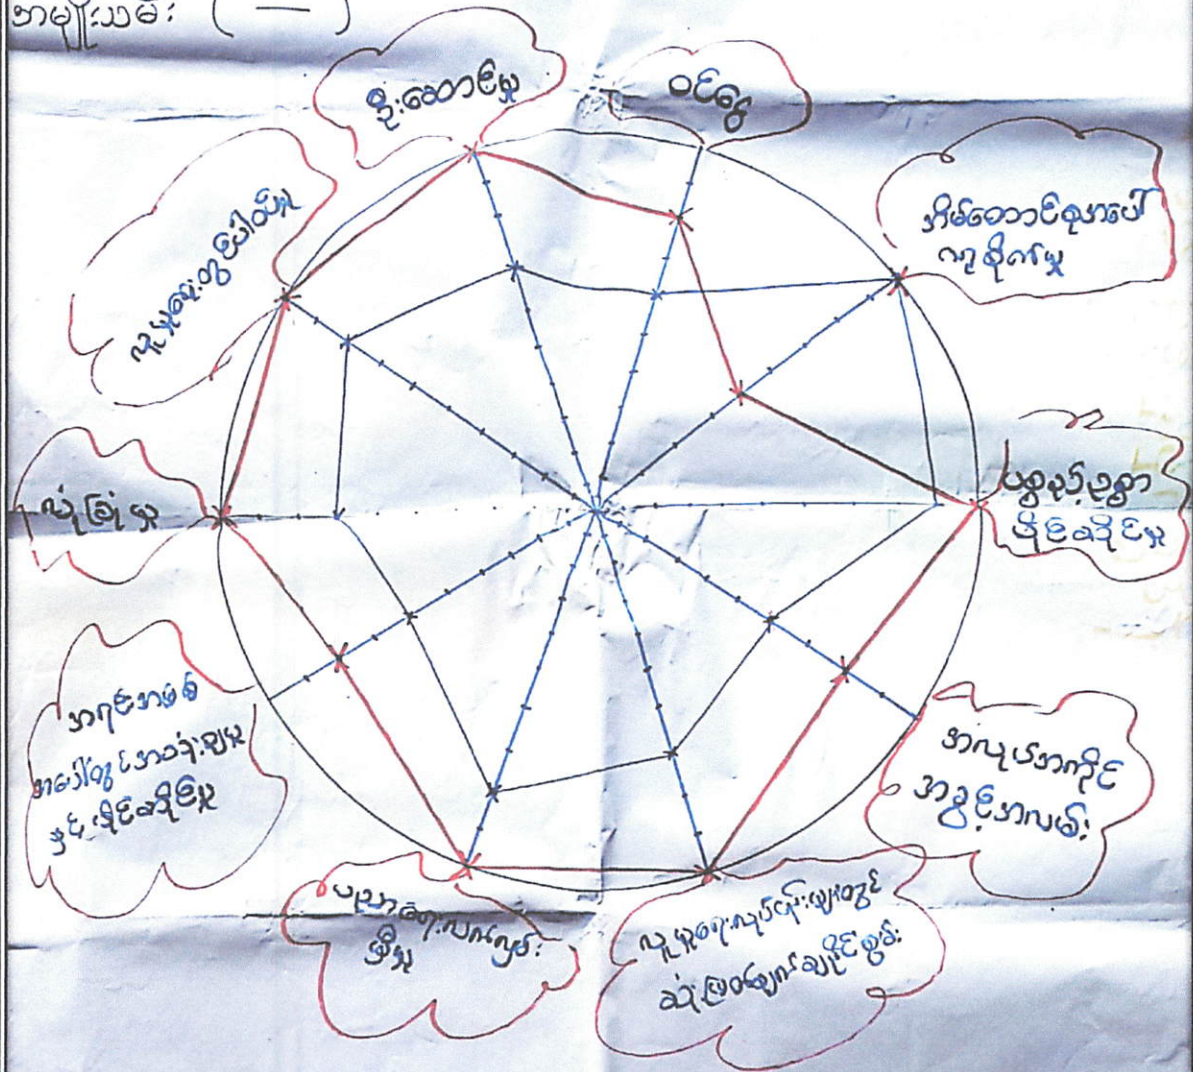 အမျိုးသမီး ( — )
ဦးဆောင်မှု
ဝင်ငွေ
အိမ်ထောင်စုအပေါ်
လွှမ်းမိုးမှု
ပစ္စည်းဥစ္စာ
ပိုင်ဆိုင်မှု
အလုပ်အကိုင်
အခွင့်အလမ်း
လူမှုရေးလုပ်ငန်းများတွင်
ဆုံးဖြတ်ချက်ချနိုင်စွမ်း
ပညာရေးလက်လှမ်း
မှီမှု
အရင်းအမြစ်
အပေါ်တွင်အသုံးချမှု
နှင့်ပိုင်ဆိုင်မှု
လုံခြုံမှု
လူမှုရေးတွင်ပါဝင်မှု